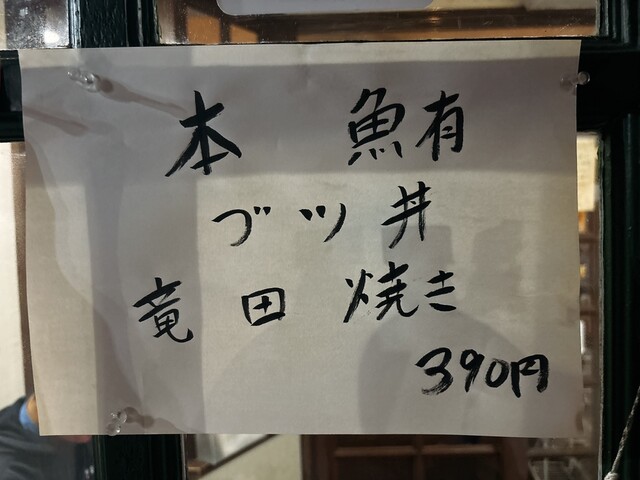 本 鮪
ブツ丼
竜田焼き
390円